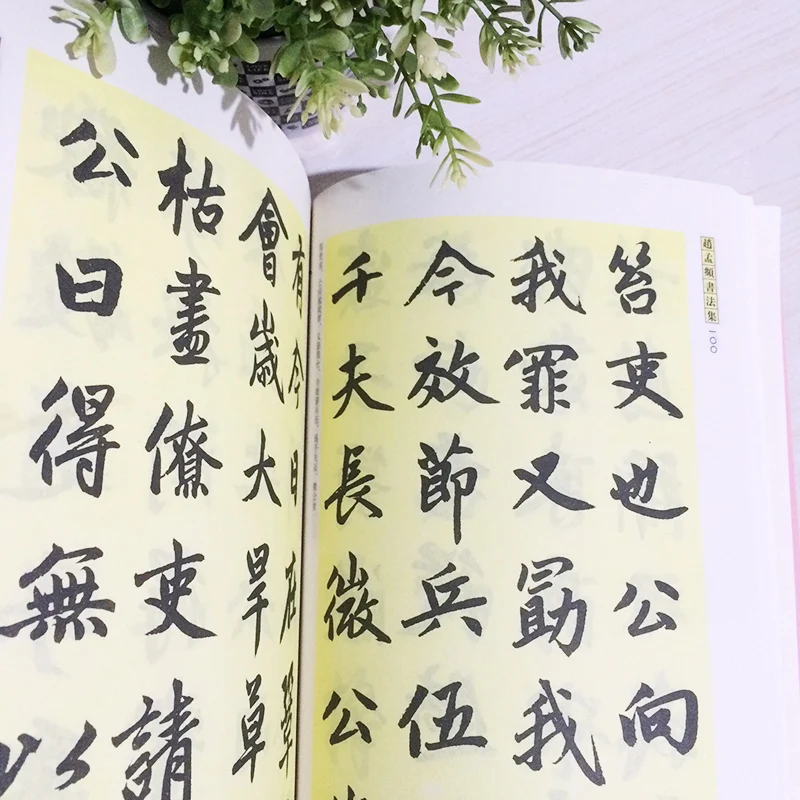 趙孟頫書法集 一〇〇
笞吏也公向
我罪又勖我
今效節兵伍
千夫長微公
有今日在
會歲大旱草
枯盡僚吏請
公曰得無以